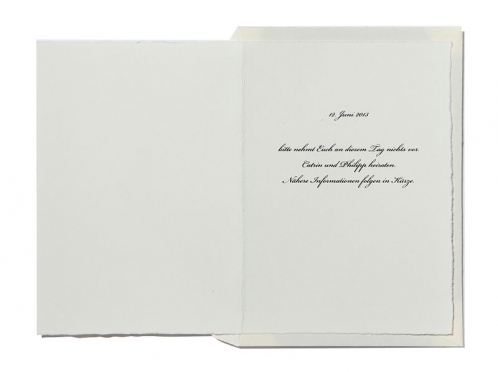 12. Juni 2015
bitte nehmt Euch an diesem Tag nichts vor.
Catrin und Philipp heiraten.
Nähere Informationen folgen in Kürze.